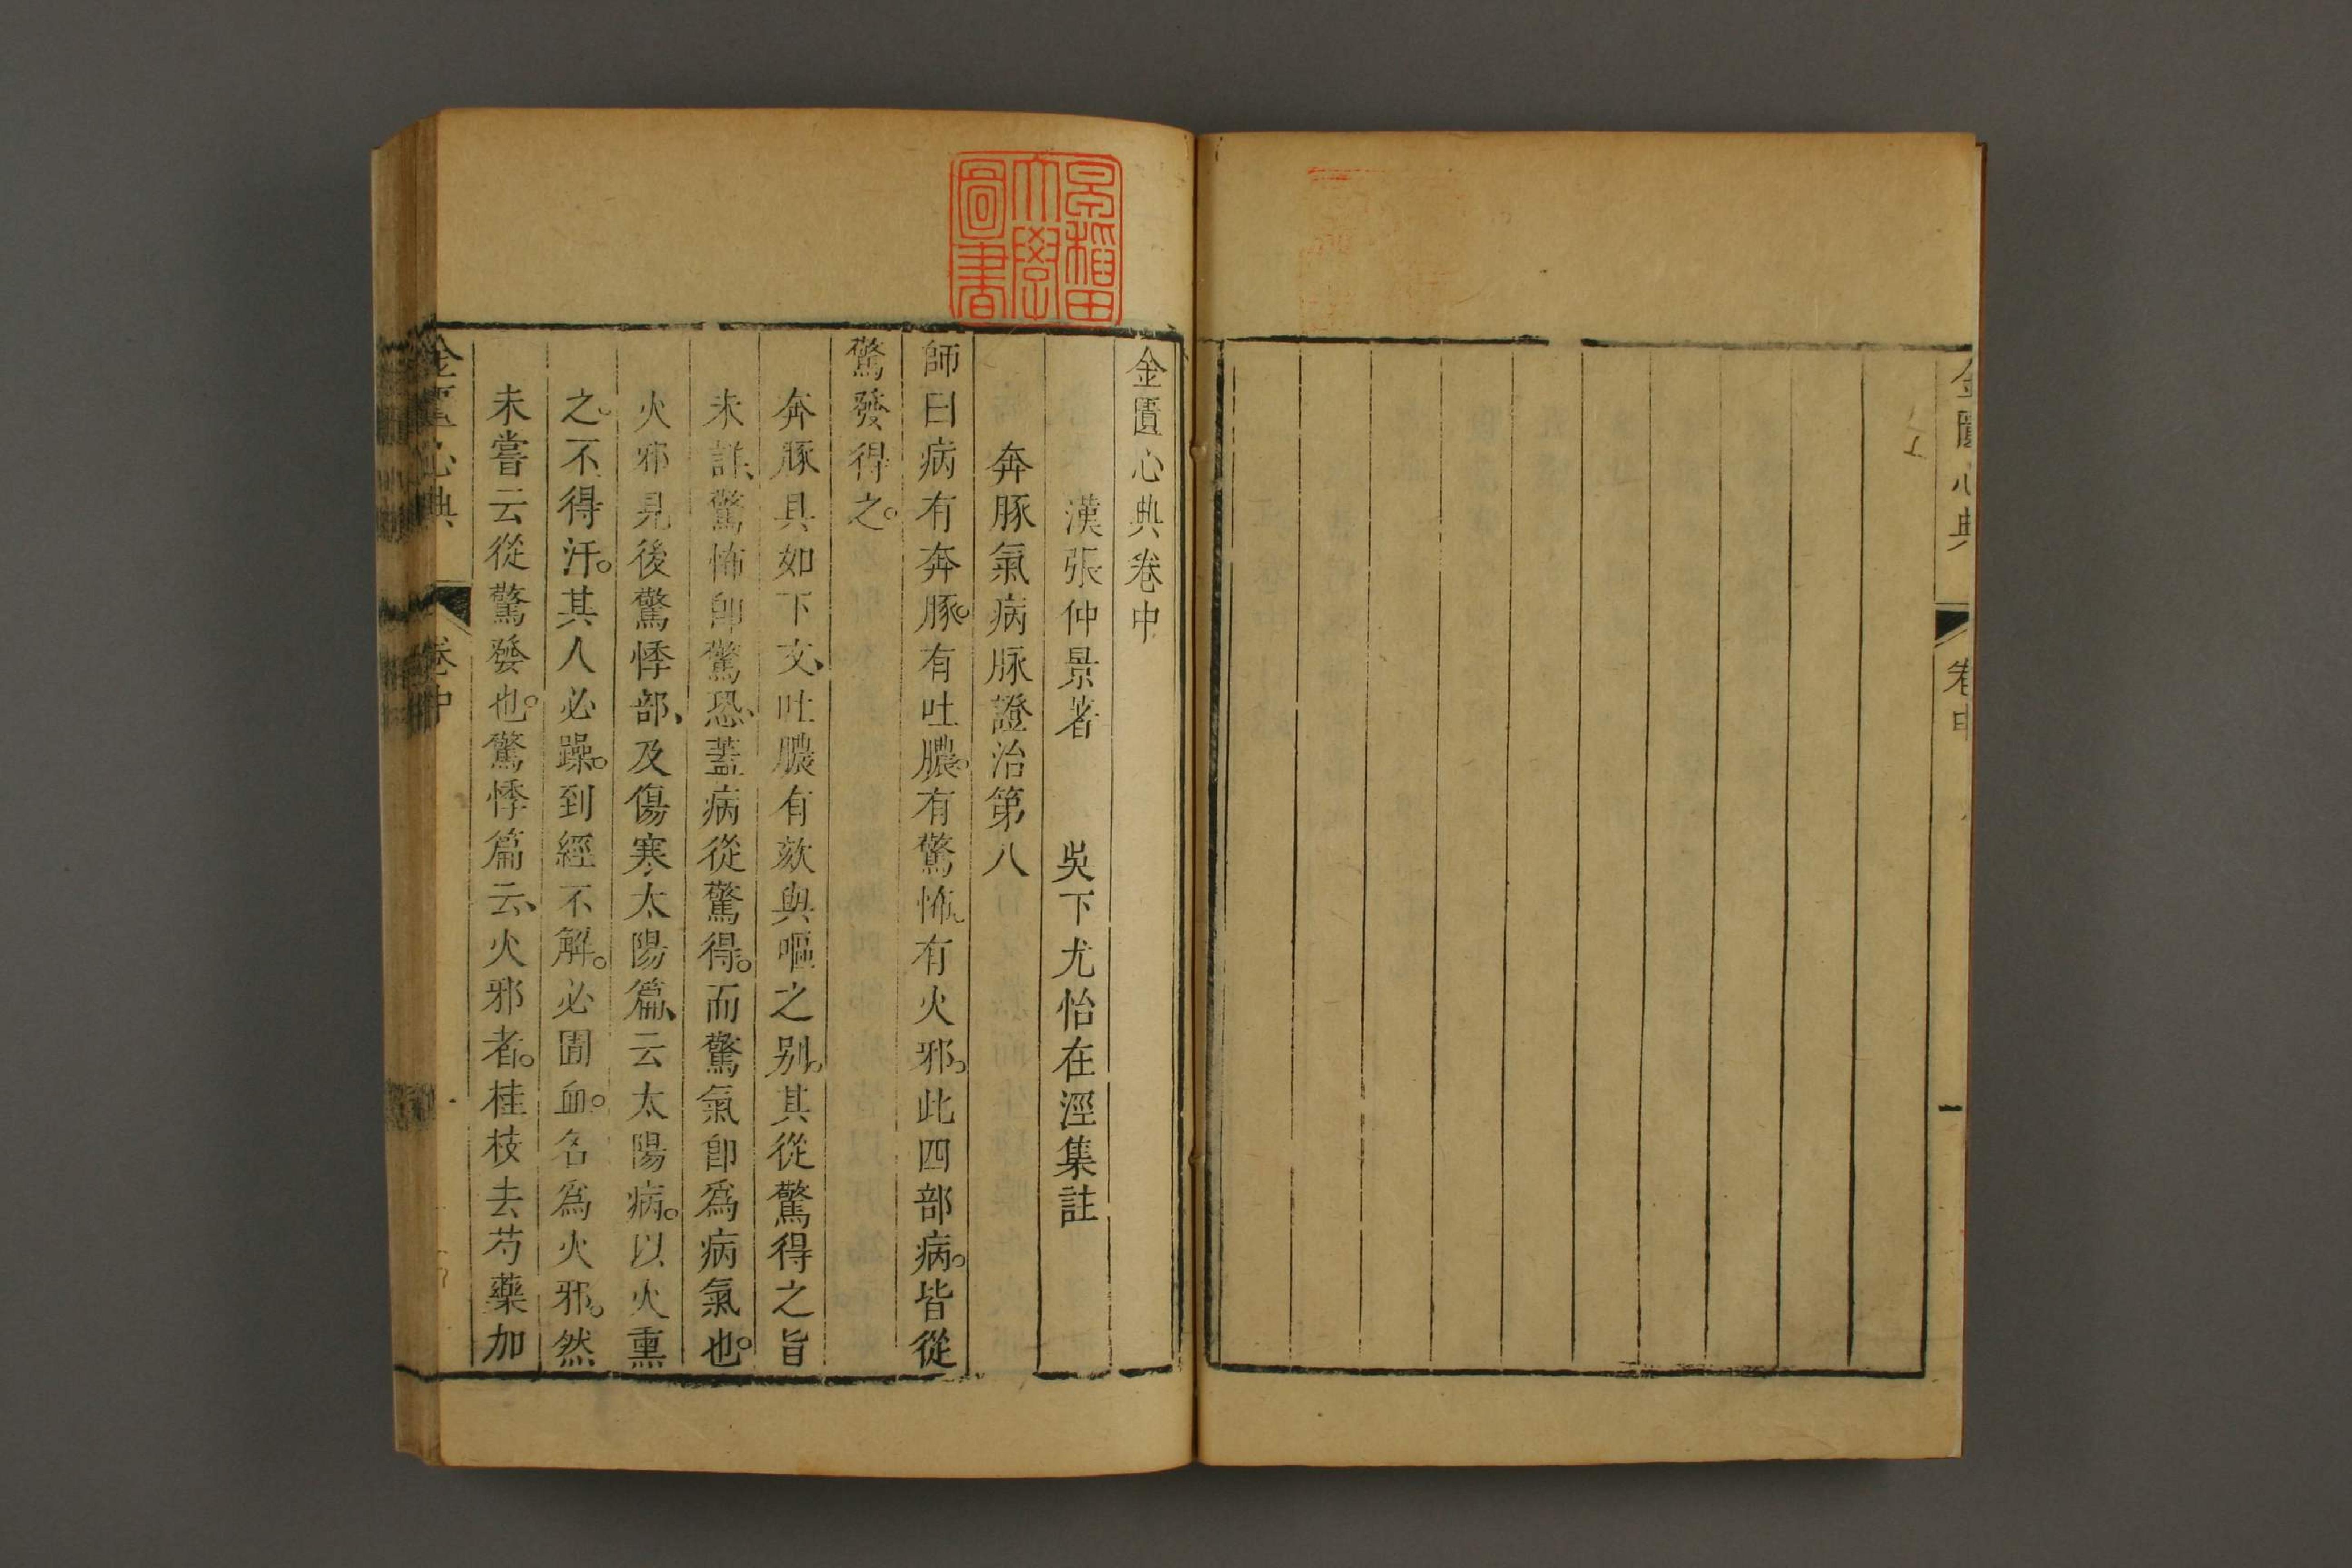 金匱心典
卷中
一
早稲田大學圖書
金匱心典卷中
漢張仲景著　吳下尤怡在涇集註
奔豚氣病脉證治第八
師曰病有奔豚。有吐膿。有驚怖。有火邪。此四部病。皆從
驚發得之。
奔豚具如下文、吐膿有欬與嘔之别。其從驚得之旨
未詳、驚怖卽驚恐、蓋病從驚得。而驚氣卽爲病氣也。
火邪見後驚悸部、及傷寒太陽篇、云太陽病。以火熏
之。不得汗。其人必躁。到經不解。必圊血。名爲火邪。然
未嘗云從驚發也。驚悸篇云、火邪者。桂枝去芍藥加
金匱心典
卷中